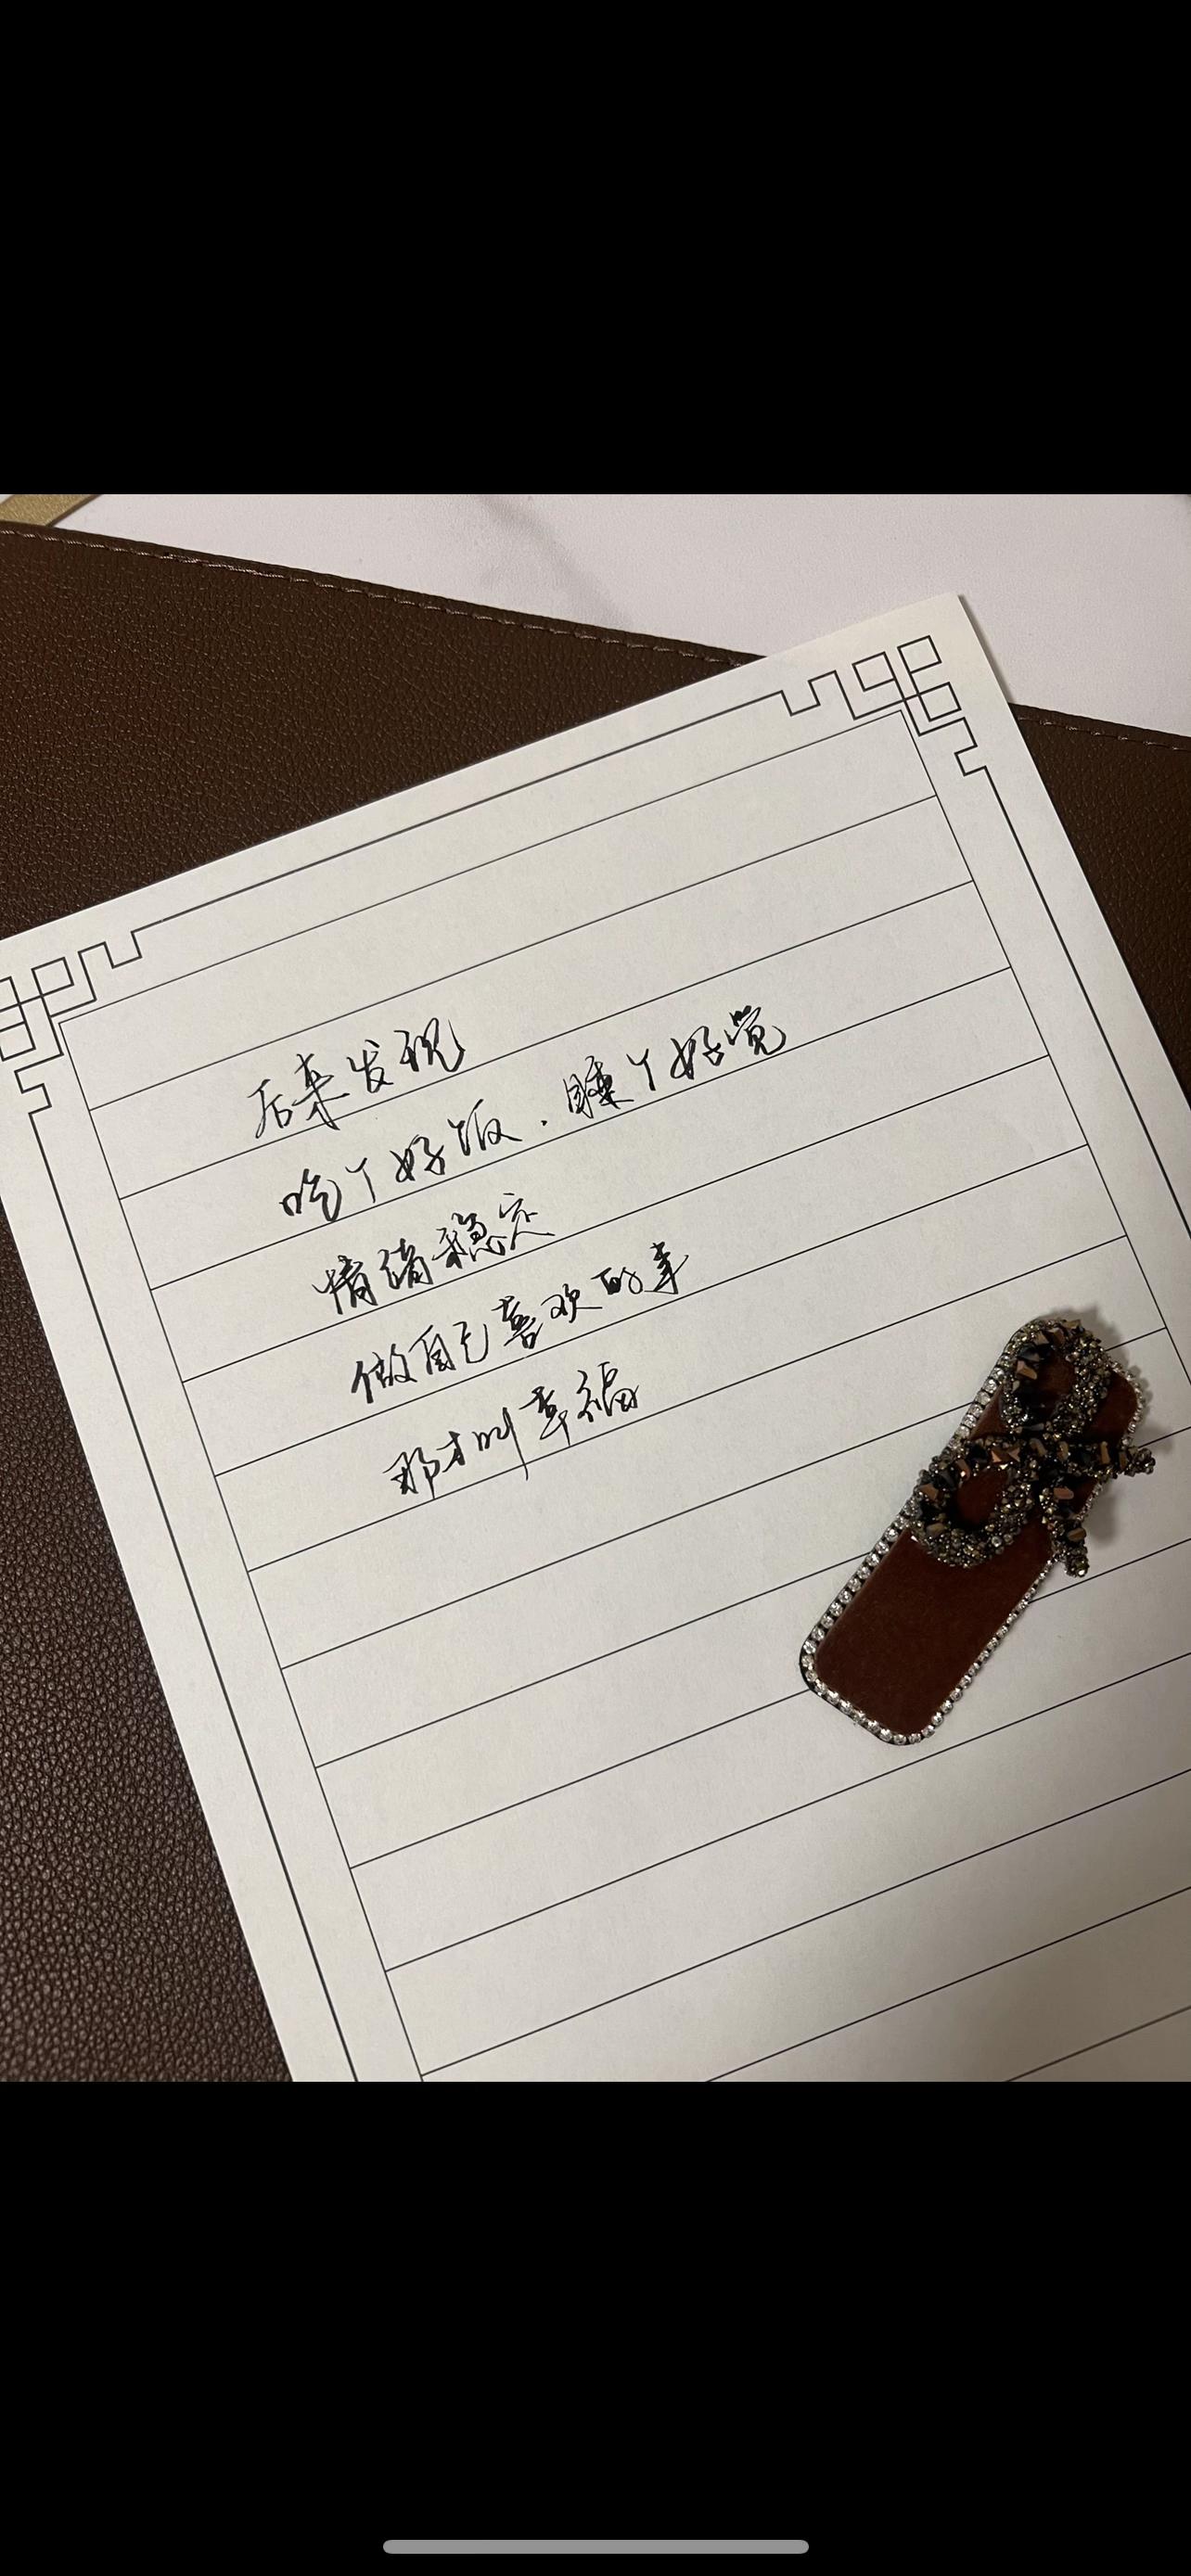 后来发现
吃个好饭.睡个好觉
情绪稳定
做自己喜欢的事
那才叫幸福